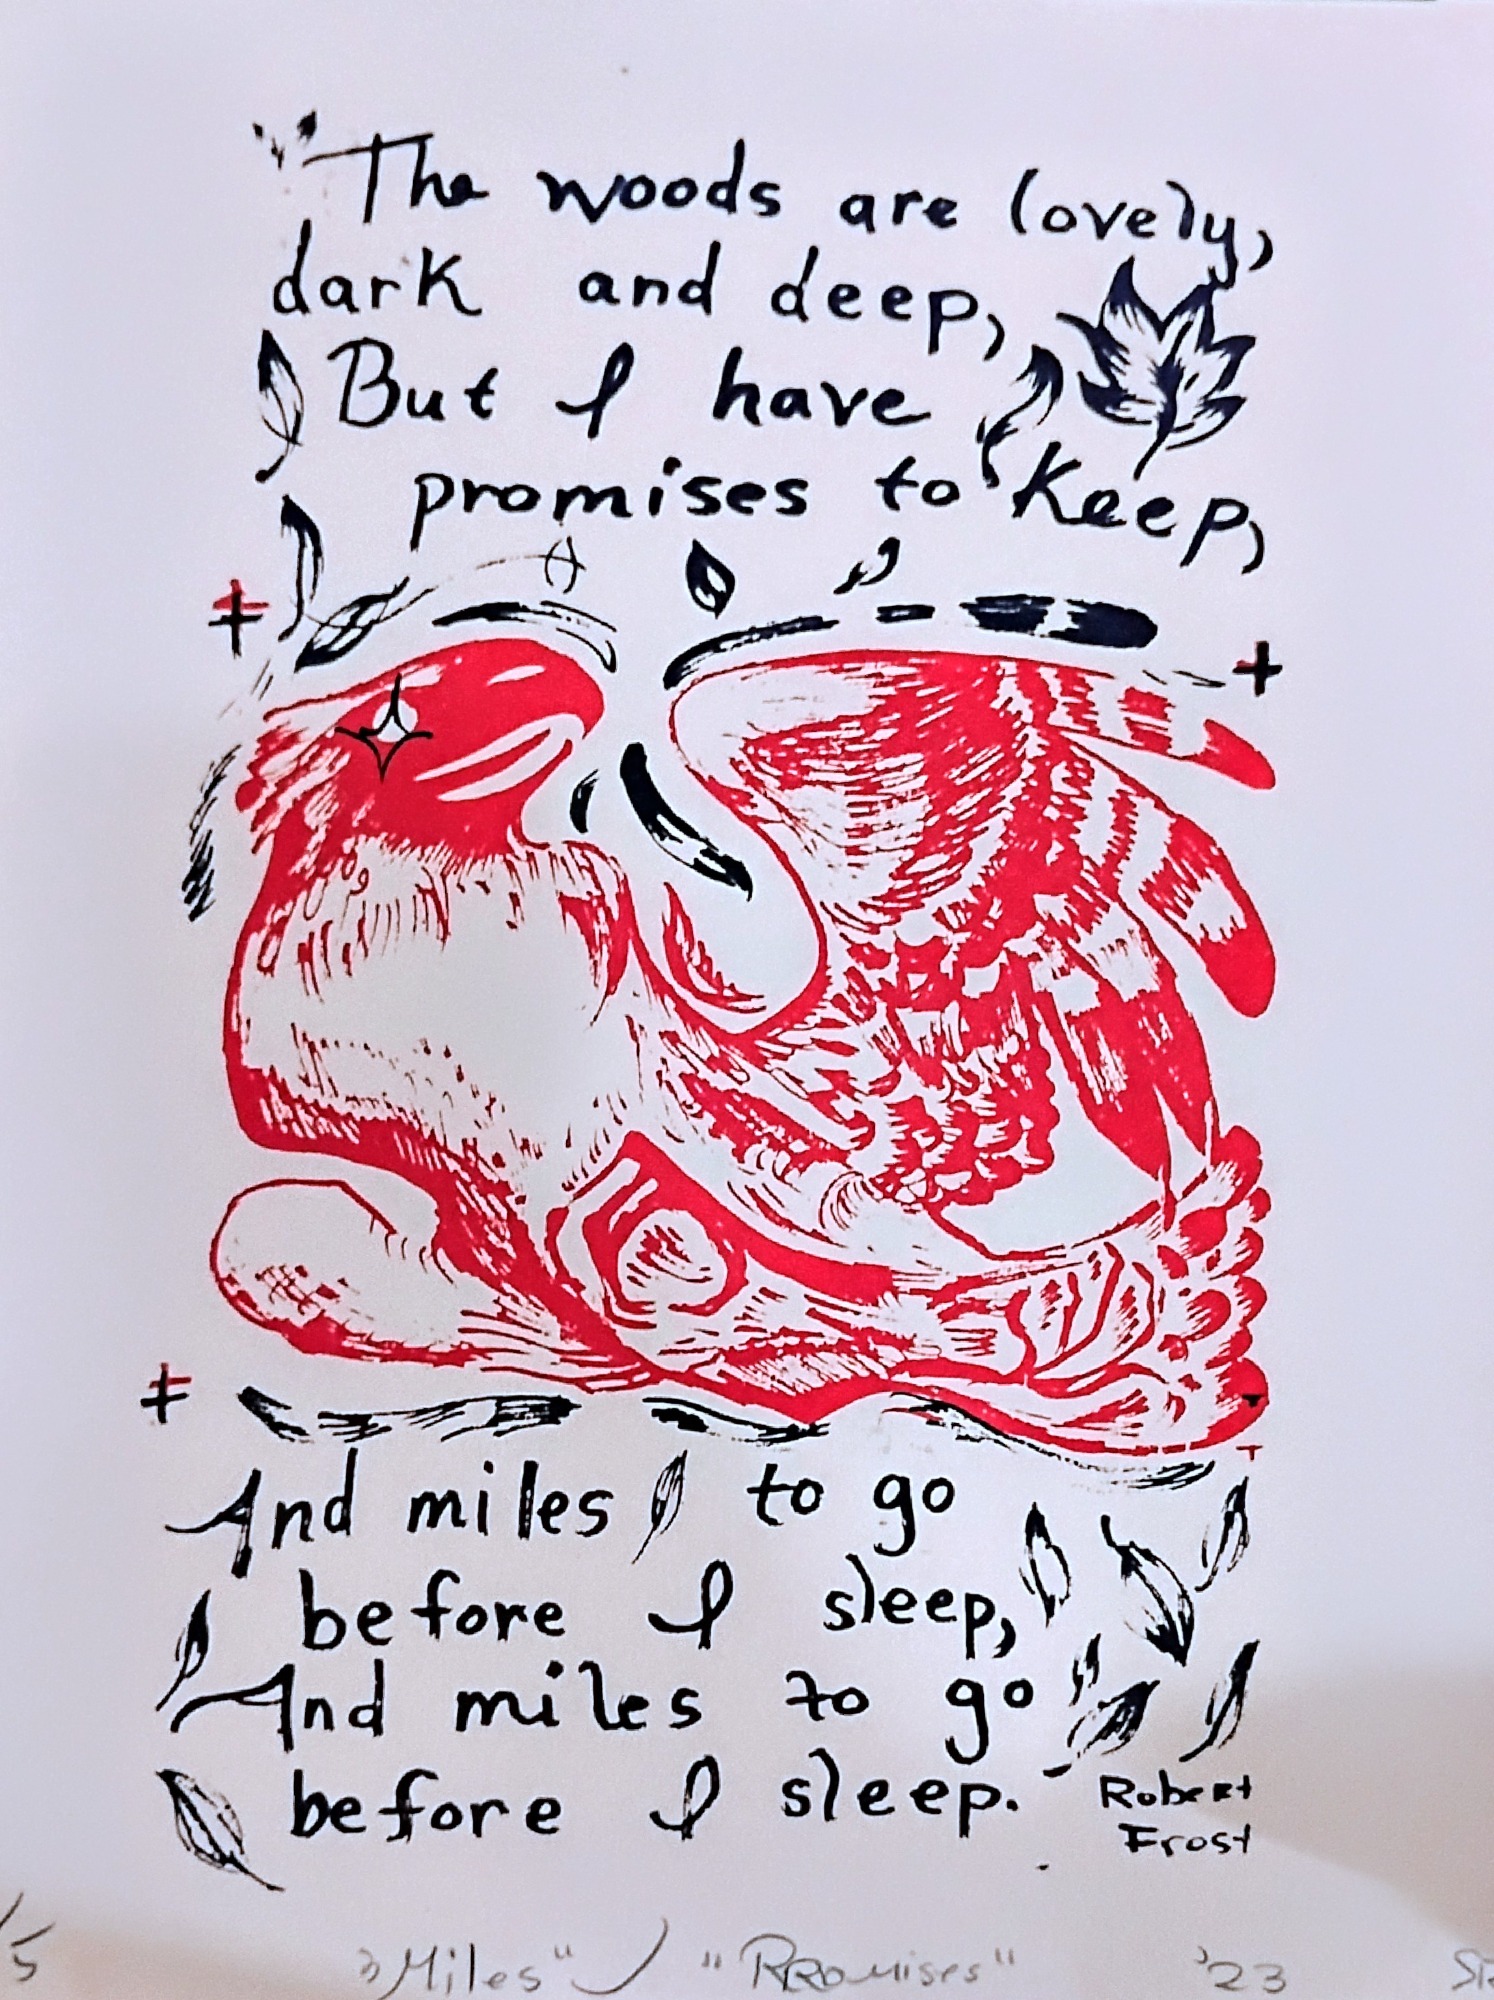 The woods are lovely,
dark and deep,
But I have
promises to keep,
And miles to go
before I sleep,
And miles to go
before I sleep.
Robert
Frost
/5 "Miles" / "Promises" '23